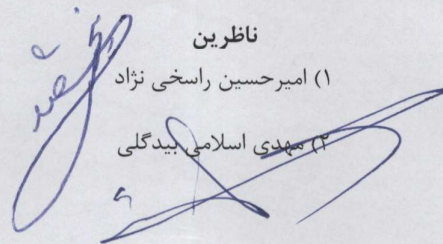 ناظرین
۱) امیرحسین راسخی نژاد
۲) مهدی اسلامی بیدگلی